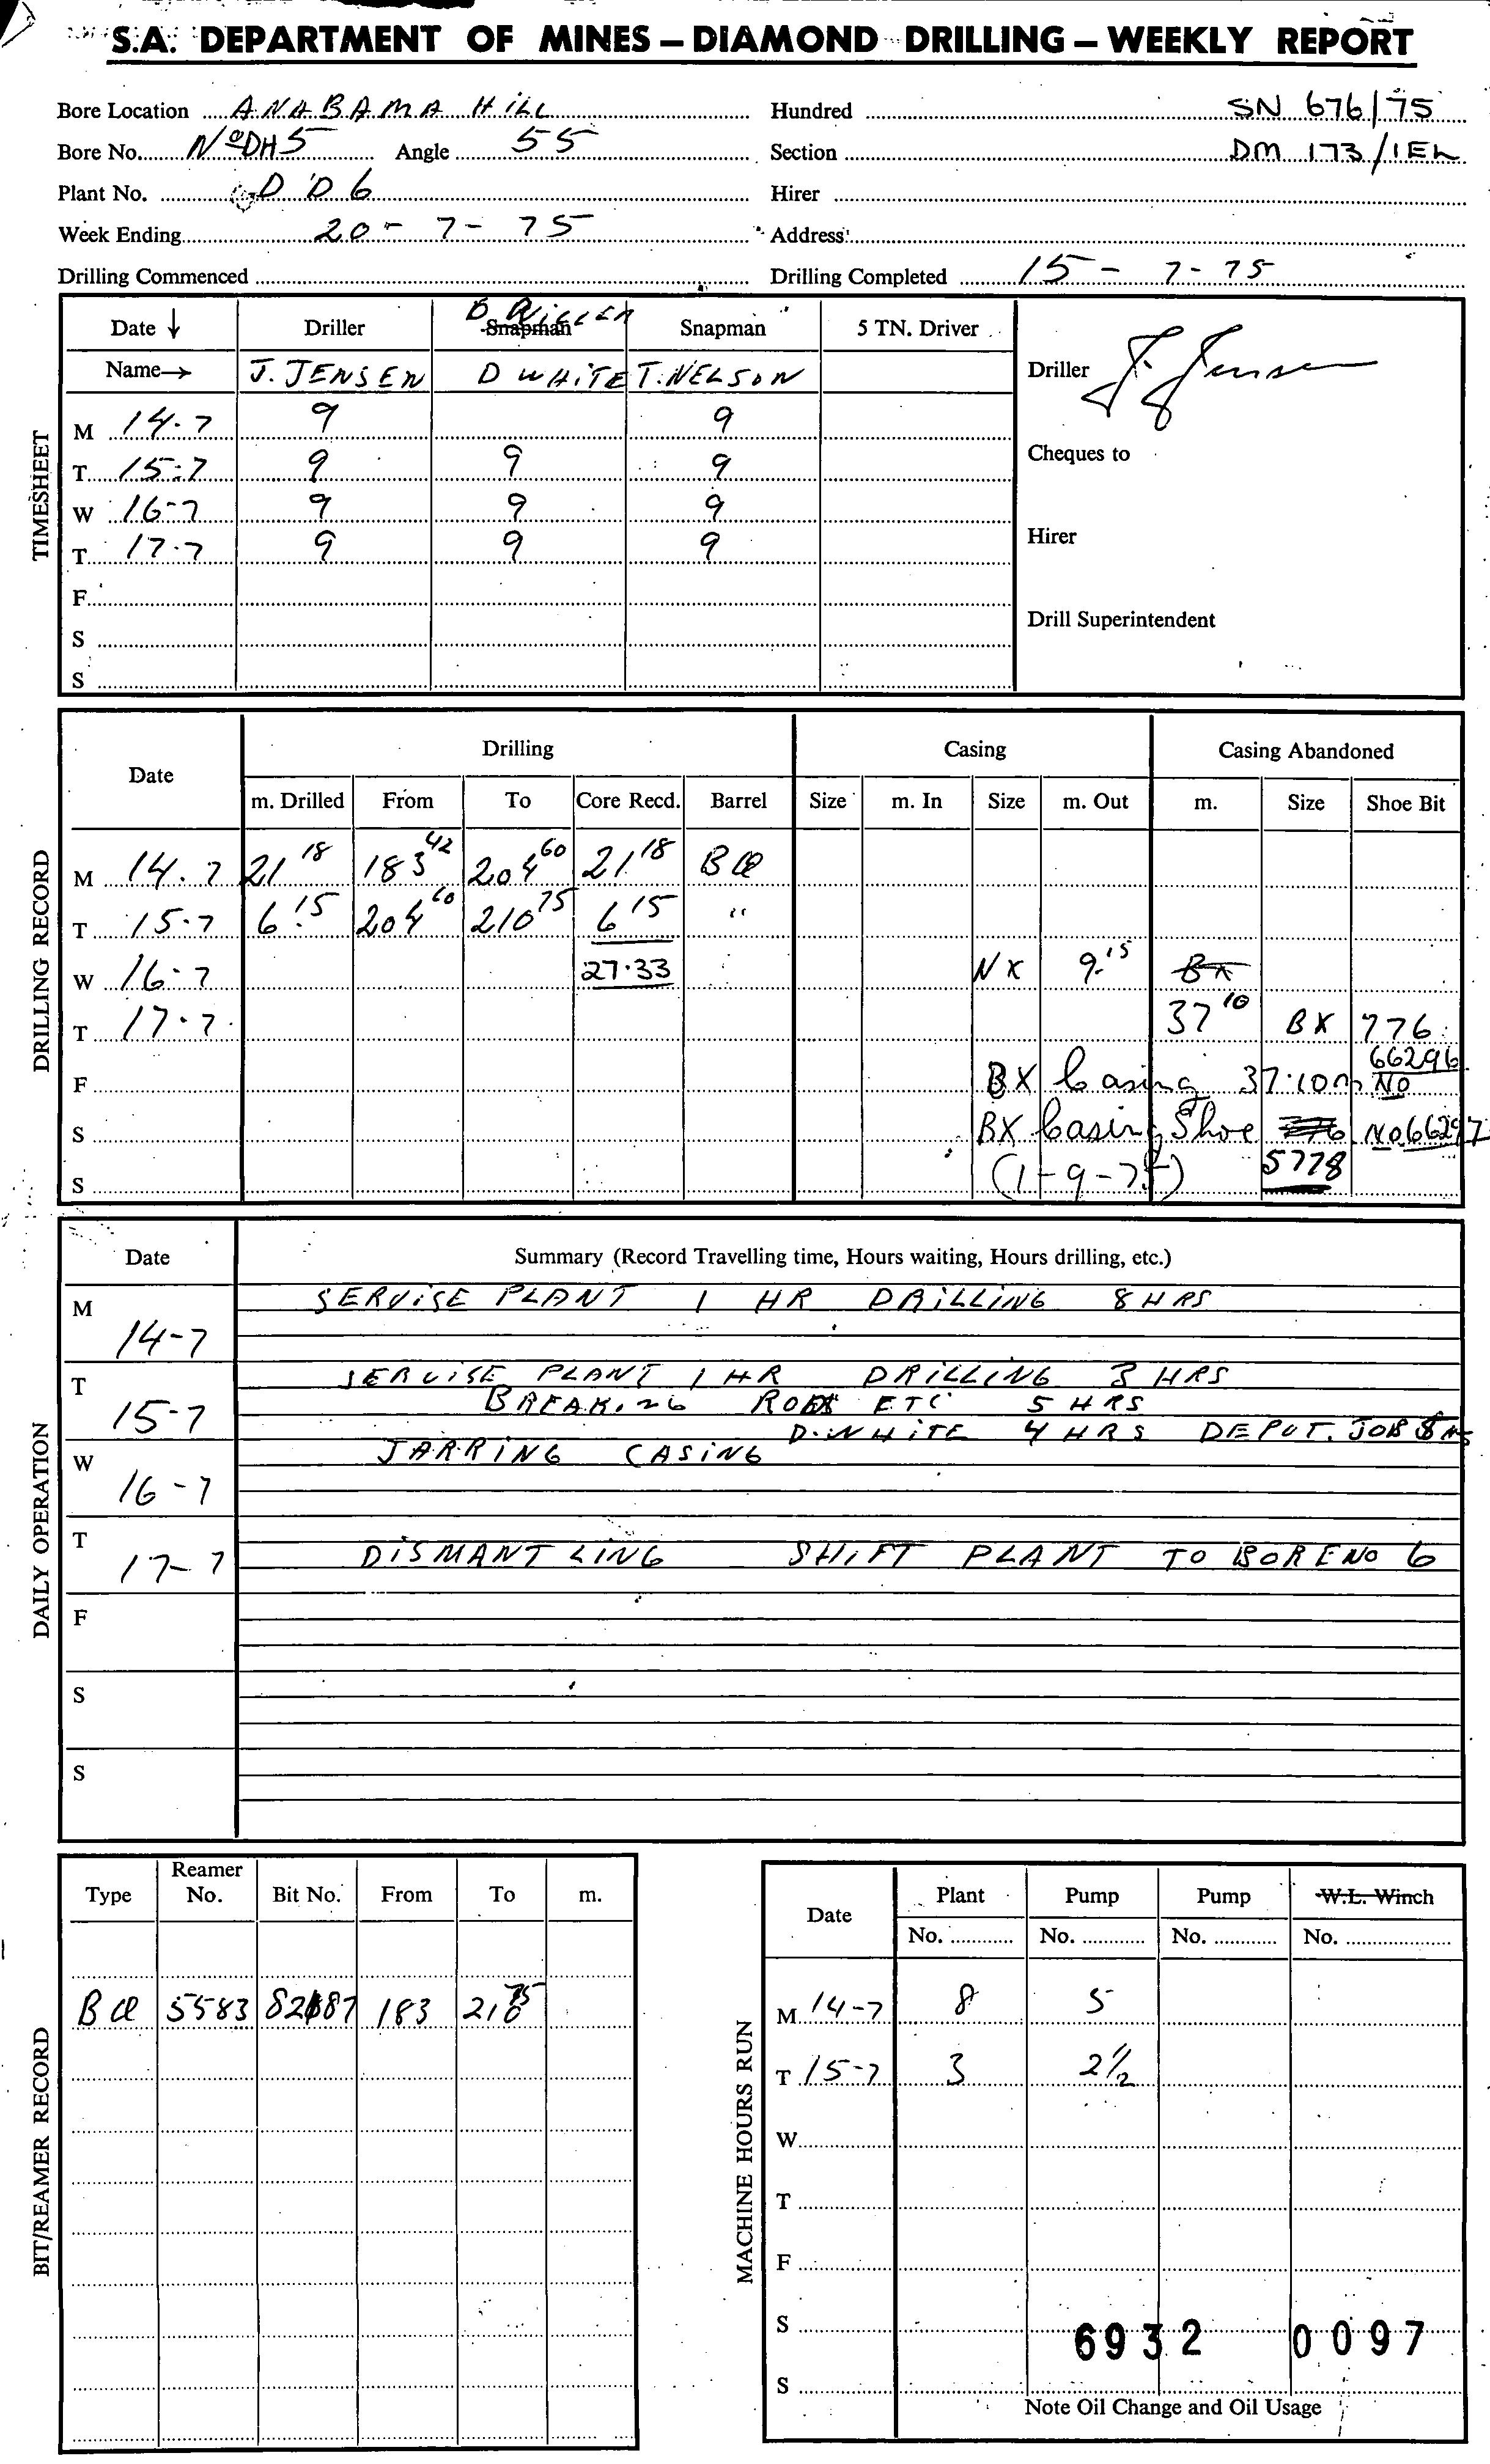 S.A. DEPARTMENT OF MINES – DIAMOND DRILLING – WEEKLY REPORT
Bore Location ANABAMA HILL Hundred SN 676/75
Bore No. Nº DH5 Angle 55 Section DM 173/1EL
Plant No. DD6 Hirer
Week Ending 20-7-75 Address
Drilling Commenced Drilling Completed 15-7-75
TIMESHEET
Date ↓ Driller Snapman DRILLER Snapman 5 TN. Driver
Name→ J. JENSEN D WHITE T. NELSON
Driller J. Jensen
M 14.7 9 9
T 15.7 9 9 9
Cheques to
W 16-7 9 9 9
T 17.7 9 9 9
Hirer
F
S
Drill Superintendent
S
DRILLING RECORD
Date Drilling Casing Casing Abandoned
m. Drilled From To Core Recd. Barrel Size m. In Size m. Out m. Size Shoe Bit
M 14.7 21 18 183 42 204 60 21 18 BQ
T 15.7 6.15 204 60 210 75 6 15 "
W 16.7 27.33 NX 9.15 BX
T 17.7 37 10 BX 776
F BX Casing 37.10m 66296 No
S BX Casing Shoe 776 No 66297
S (1-9-75) 5778
DAILY OPERATION
Date Summary (Record Travelling time, Hours waiting, Hours drilling, etc.)
M 14-7 SERVISE PLANT 1 HR DRILLING 8 HRS
T 15-7 SERVISE PLANT 1 HR DRILLING 3 HRS
BREAKING RODS ETC 5 HRS
D. WHITE 4 HRS DEPOT. JOB
W 16-7 JARRING CASING
T 17-7 DISMANTLING SHIFT PLANT TO BORE NO 6
F
S
S
BIT/REAMER RECORD
Type Reamer No. Bit No. From To m.
BQ 5583 82687 183 210 75
MACHINE HOURS RUN
Date Plant Pump Pump W.L. Winch
No. No. No. No.
M 14-7 8 5
T 15-7 3 2½
W
T
F
S
6932 0097
S
Note Oil Change and Oil Usage